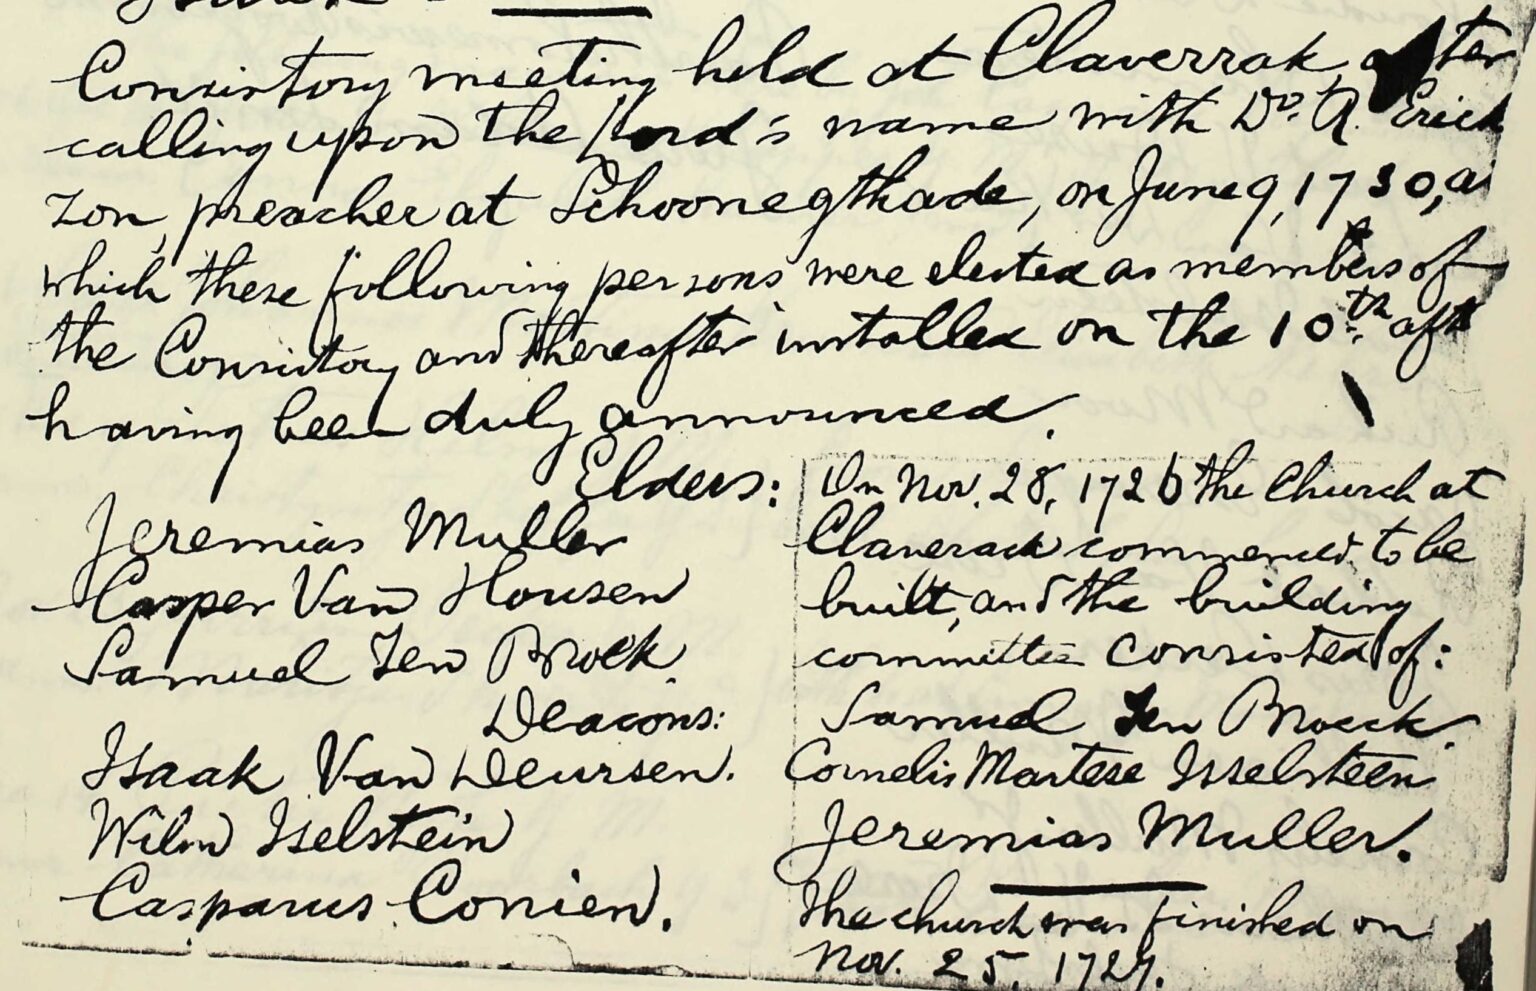 Consistory meeting held at Claverrak, after
calling upon the Lord's name with Do. R. Erick
zon, preacher at Schoonegthade, on June 9, 1730, a
which these following persons were elected as members of
the Consistory and thereafter installed on the 10th aft
having been duly announced.
Elders:
Jeremias Muller
Casper Van Housen
Samuel Ten Broek.
Deacons:
Isaak Van Deursen.
Wilm Iselstein
Casparus Conien.
On Nov. 28, 1726 the Church at
Claverack commenced to be
built, and the building
committee consisted of:
Samuel Ten Broeck.
Cornelis Martese Isselsteen
Jeremias Muller.
The church was finished on
Nov. 25, 1727.